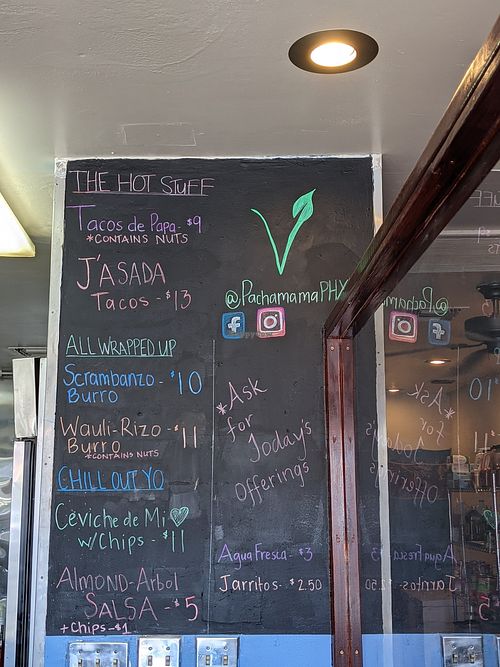 THE HOT STUFF
Tacos de Papa - $9
*CONTAINS NUTS
J'ASADA
Tacos - $13
ALL WRAPPED UP
Scrambanzo - $10
Burro
Wauli-Rizo - $11
Burro
*CONTAINS NUTS
CHILL OUT YO
Ceviche de Mi
w/Chips - $11
ALMOND-Arbol
SALSA - $5
+ Chips - $1
@PachamamaPHX
*Ask
for
Today's
Offerings
Agua Fresca - $3
Jarritos - $2.50